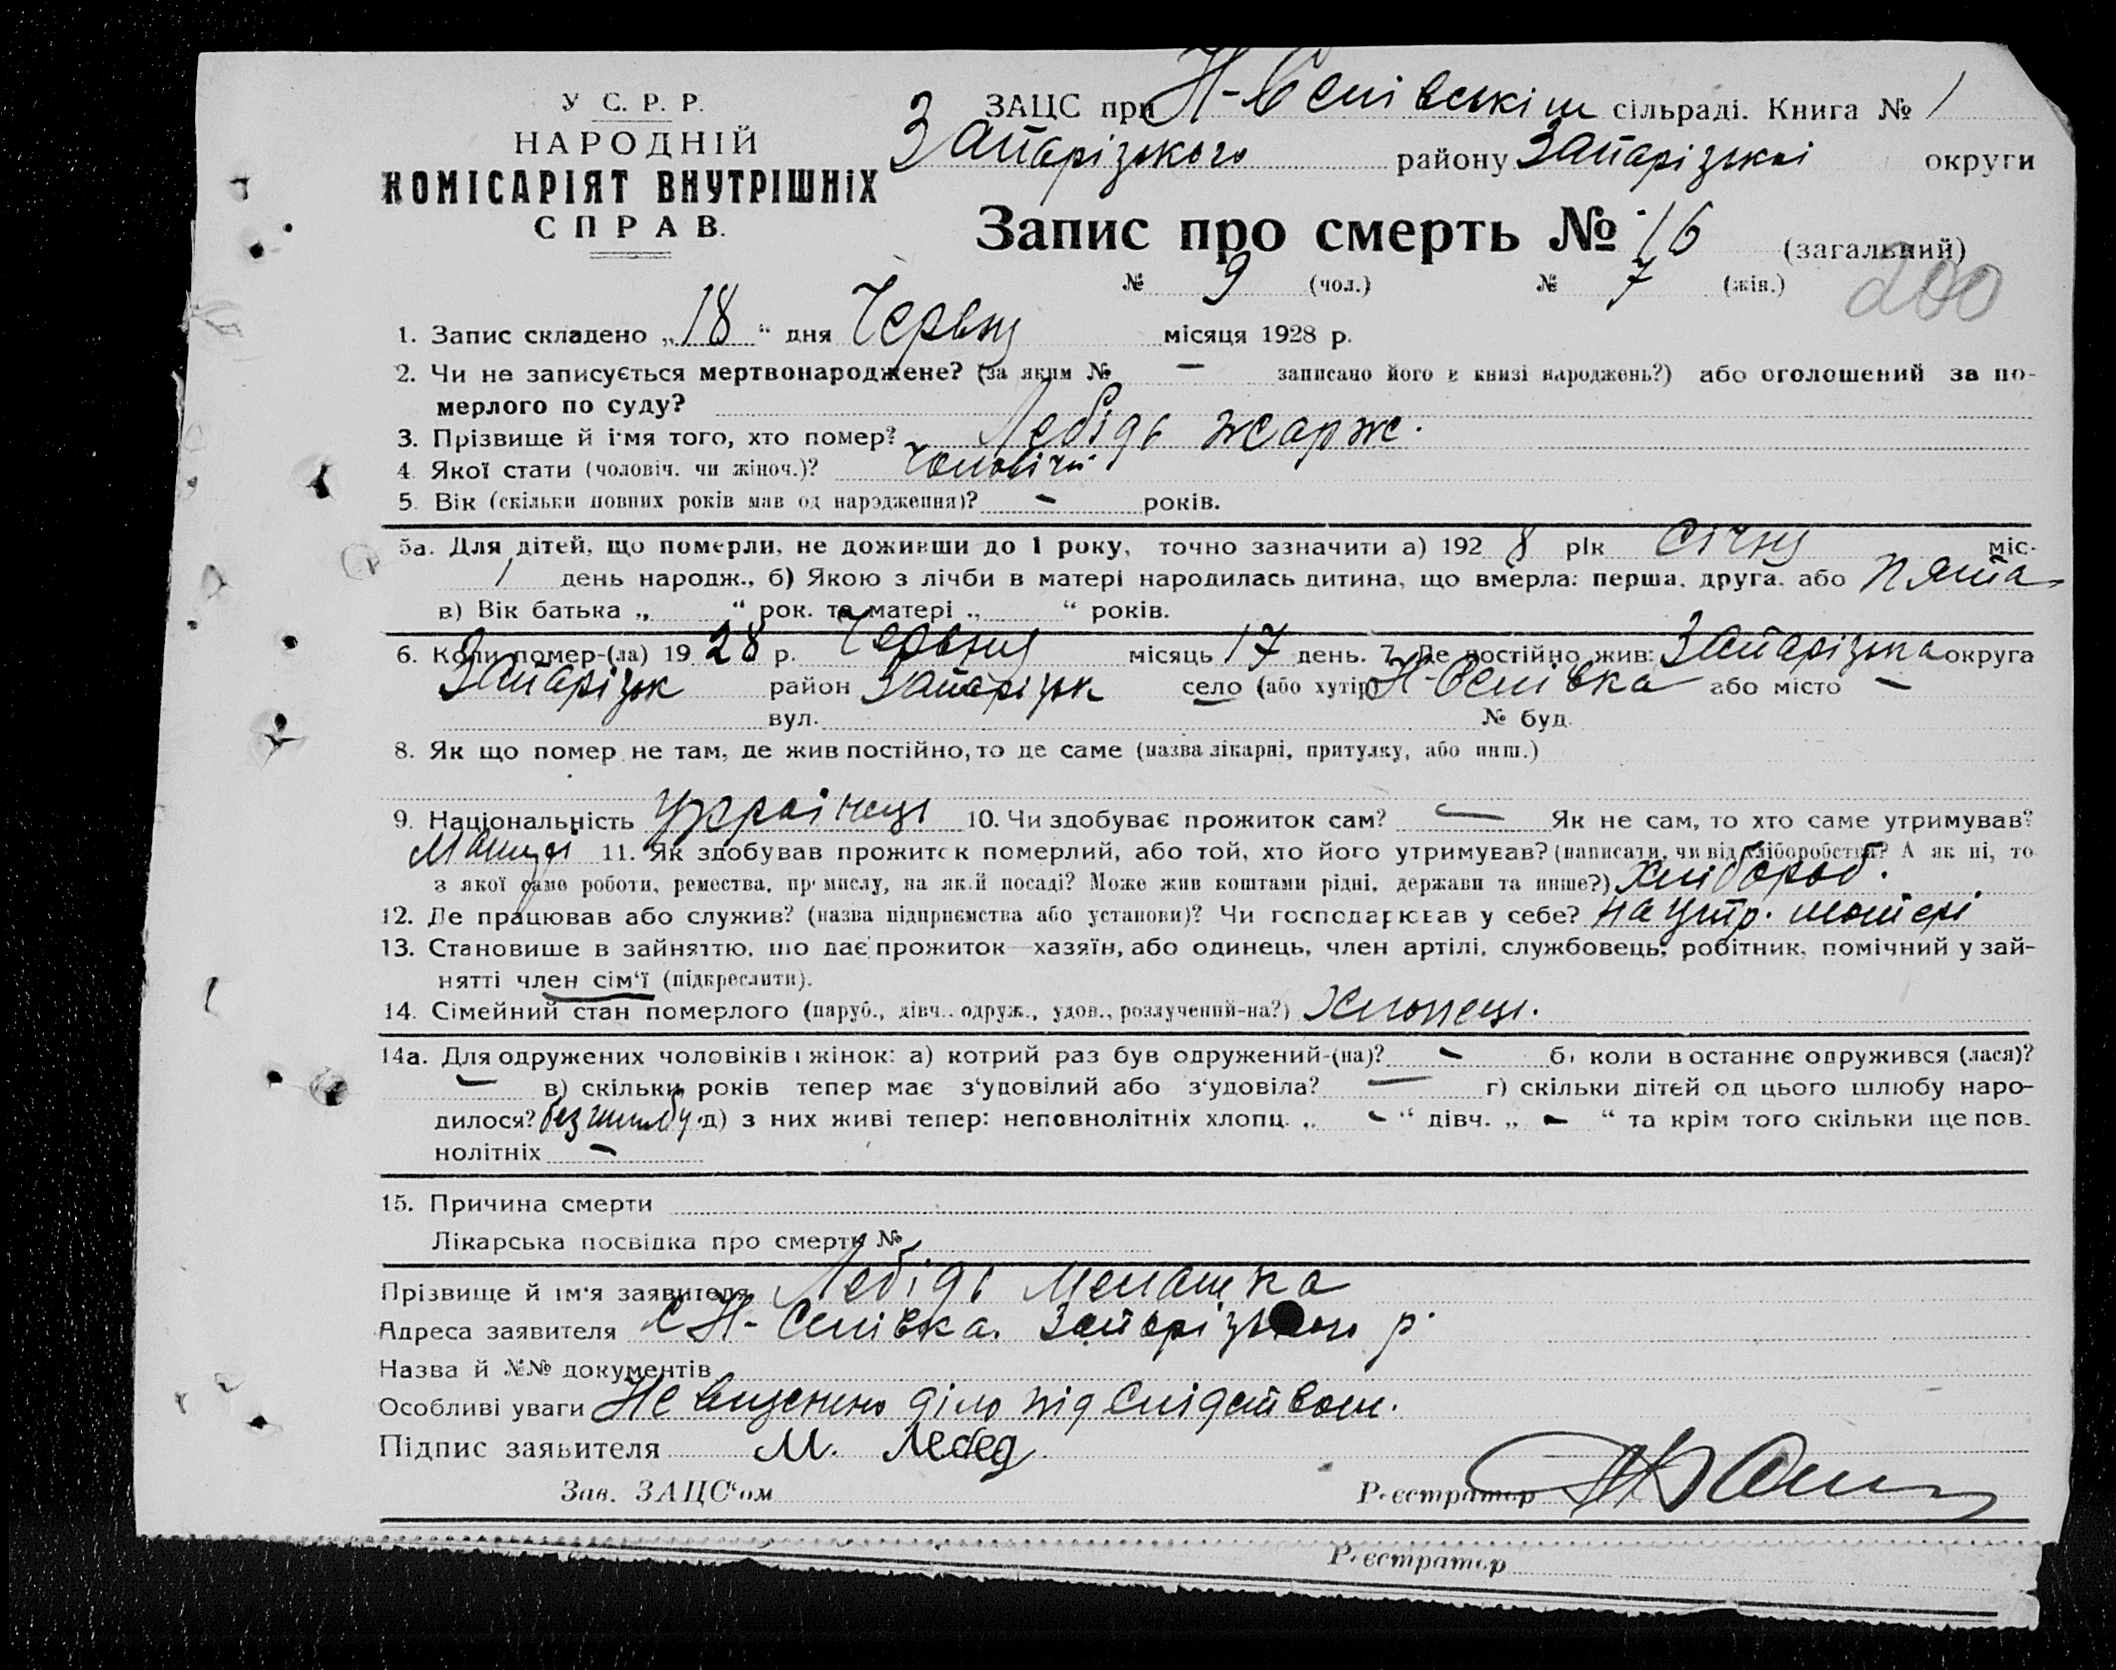 У С. Р. Р.
НАРОДНІЙ
КОМІСАРІЯТ ВНУТРІШНІХ
СПРАВ.
ЗАЦС при сільраді. Книга № 1
Запарізького району Запарізької округи
Запис про смерть № 16 (загальний)
№ 9 (чол.) № 7 (жін.)
200
1. Запис складено „18“ дня Червня місяця 1928 р.
2. Чи не записується мертвонароджене? (за яким № — записано його в книзі народжень?) або оголошений за по-
мерлого по суду?
3. Прізвище й імя того, хто помер? Лебідь жарж.
4 Якої стати (чоловіч. чи жіноч.)? чоловічи
5. Вік (скільки повних років мав од народження)? - років.
5а. Для дітей, що померли, не доживши до 1 року, точно зазначити а) 1928 рік Січня міс.
1 день народж., б) Якою з лічби в матері народилась дитина, що вмерла: перша, друга, або пята
в) Вік батька „ “ рок. та матері „ “ років.
6. Коли помер-(ла) 1928 р. Червня місяць 17 день. 7. Де постійно жив: Запарізька округа
Запарізьк район Запарізьк село (або хутір) або місто —
вул. № буд.
8. Як що помер не там, де жив постійно, то де саме (назва лікарні, притулку, або инш.)
9. Національність Українець 10. Чи здобуває прожиток сам? — Як не сам, то хто саме утримував?
11. Як здобував прожиток померлий, або той, хто його утримував? (написати, чи від хліборобства? А як ні, то
з якої саме роботи, ремества, промислу, на якій посаді? Може жив коштами рідні, держави та инше?) Хлібороб.
12. Де працював або служив? (назва підприємства або установи)? Чи господарював у себе? На утр. матері
13. Становище в зайняттю, що дає прожиток—хазяїн, або одинець, член артілі, службовець, робітник, помічний у зай-
нятті член сім‘ї (підкреслити).
14. Сімейний стан померлого (паруб., дівч.. одруж., удов., розлучений-на?) Хлопець.
14а. Для одружених чоловіків і жінок: а) котрий раз був одружений-(на)? - б) коли в останнє одружився (лася)?
— в) скільки років тепер має з‘удовілий або з‘удовіла? — г) скільки дітей од цього шлюбу наро-
дилося? без шлюбу. д) з них живі тепер: неповнолітніх хлопц. „ - “ дівч. „ - “ та крім того скільки ще пов.
нолітніх -
15. Причина смерти
Лікарська посвідка про смерть №
Прізвище й ім‘я заявителя Лебідь Мелашка
Адреса заявителя р.
Назва й №№ документів
Особливі уваги діло під Слідством.
Підпис заявителя М. Лебед
Зав. ЗАЦС‘ом Реєстратор
Реєстратор